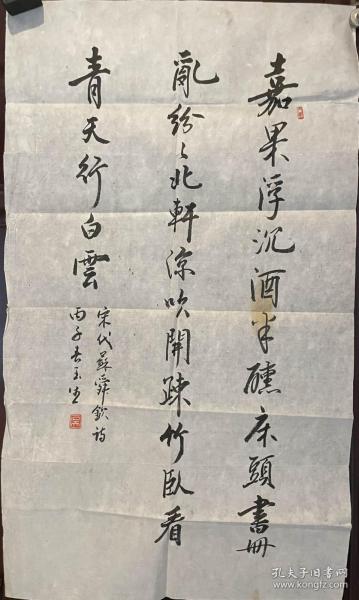 嘉果浮沉酒半醺床頭書冊
亂紛〻北軒涼吹開疎竹臥看
青天行白雲
宋代蘇舜欽詩
丙子春玉生
孔夫子旧书网